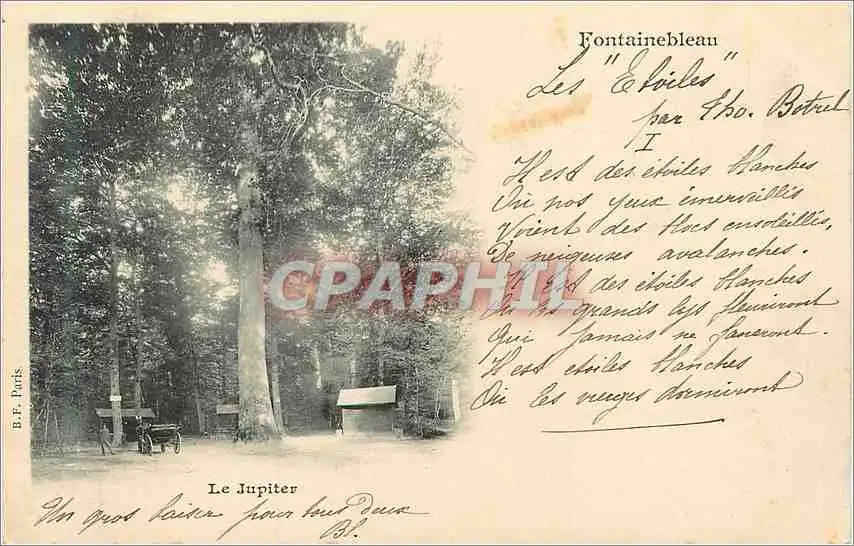 Fontainebleau
Les "Etoiles"
par Tho. Botrel
I
Il est des étoiles blanches
Où nos yeux émerveillés
Voient des blocs ensoleillés,
De neigeuses avalanches.
Il est des étoiles blanches
Où les grands lys fleuriront
Qui jamais ne faneront.
Il est étoiles blanches
Où les vierges dormiront
CPAPHIL
B.F. Paris.
Le Jupiter
Un gros baiser pour tous deux
Bl.